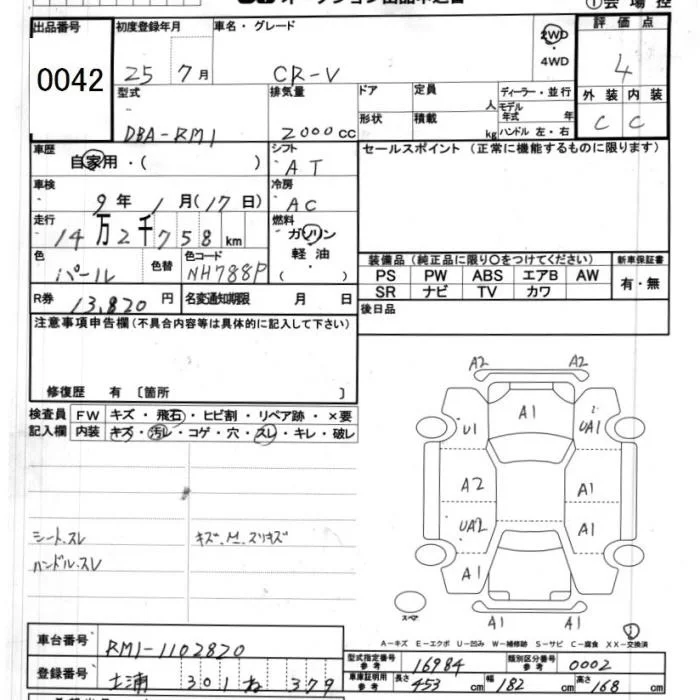 出品番号 初度登録年月 車名・グレード ①会場控
0042 25 7月 CR-V 2WD ・ 4WD 評価点 4
型式 DBA-RM1 排気量 2000cc ドア 定員 人 ディーラー・並行 外装 内装
形状 積載 kg モデル年式 年 ハンドル 左・右 C C
車歴 自家用・( ) シフト AT セールスポイント (正常に機能するものに限ります)
車検 9年 1月(17日) 冷房 AC
走行 14万2千758km 燃料 ガソリン
軽油
( )
色 パール 色替 色コード NH788P
装備品 (純正品に限り○をつけてください) 新車保証書
PS PW ABS エアB AW 有・無
SR ナビ TV カワ
R券 13,820円 名変通知期限 月 日
後日品
注意事項申告欄(不具合内容等は具体的に記入して下さい)
修復歴 有 [箇所 ]
検査員 FW キズ・飛石・ヒビ割・リペア跡・×要
記入欄 内装 キズ・汚レ・コゲ・穴・スレ・キレ・破レ
A2 A2
A1
U1 UA1
A2 A1
UA2 A1
A1
A1 A1
スペア
シート.スレ キズ.M.スリキズ
ハンドル.スレ
A-キズ E-エクボ U-凹み W-補修跡 S-サビ C-腐食 XX-交換済
車台番号 RM1-1102820
型式指定番号 参考 16984 類別区分番号 参考 0002
登録番号 土浦 301 ね 379
車庫証明用 参考 長さ 453cm 幅 182cm 高さ 168cm